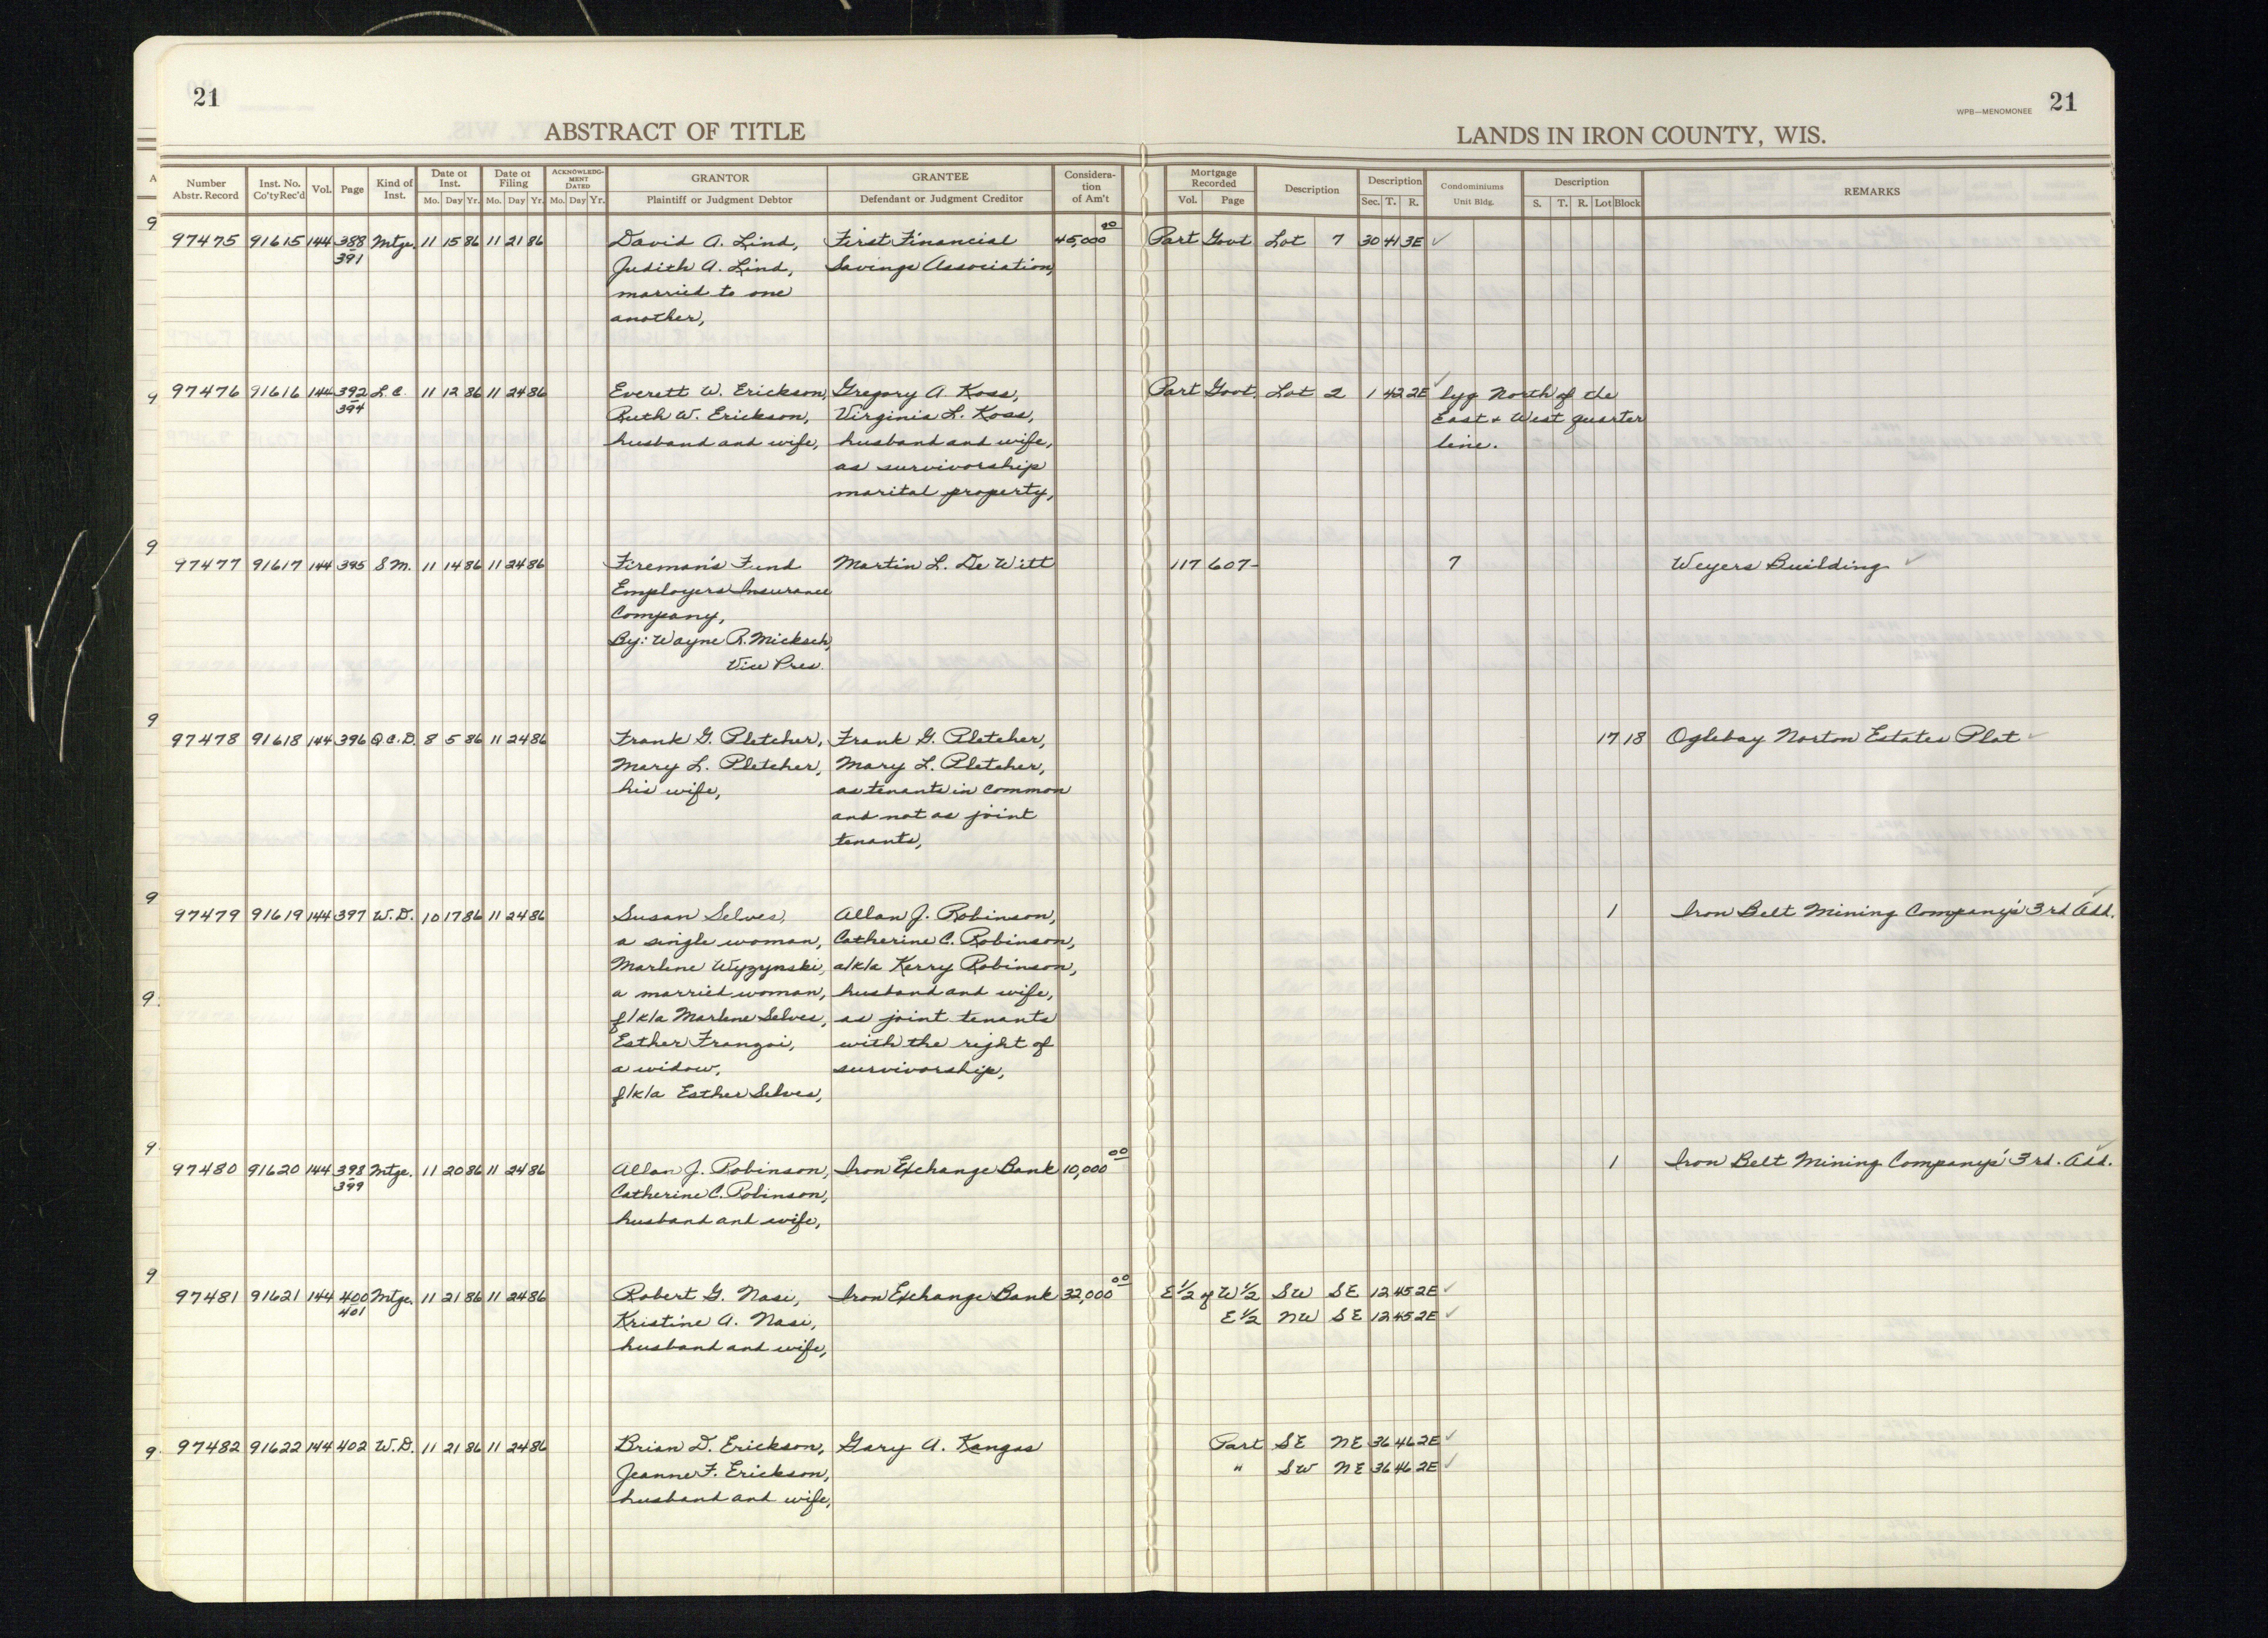 21
21
WPB—MENOMONEE
ABSTRACT OF TITLE
LANDS IN IRON COUNTY, WIS.
Number Abstr. Record Inst. No. Co'tyRec'd Vol. Page Kind of Inst. Date of Inst. Mo. Day Yr. Date of Filing Mo. Day Yr. ACKNOWLEDGMENT DATED Mo. Day Yr. GRANTOR Plaintiff or Judgment Debtor GRANTEE Defendant or Judgment Creditor Considera-tion of Am't Mortgage Recorded Vol. Page Description Description Sec. T. R. Condominiums Unit Bldg. Description S. T. R. Lot Block REMARKS
97475 91615 144 388 Mtge. 11 15 86 11 21 86 David A. Lind, First Financial 45,000 00 Part Govt Lot 7 30 41 3E ✓
391 Judith A. Lind, Savings Association,
married to one
another,
97476 91616 144 392 L.C. 11 12 86 11 24 86 Everett W. Erickson, Gregory A Koss, Part Govt. Lot 2 1 42 2E ✓ lyg North of the
394 Ruth W. Erickson, Virginia L. Koss, East & West quarter
husband and wife, husband and wife, line.
as survivorship
marital property,
97477 91617 144 395 S.M. 11 14 86 11 24 86 Fireman's Fund Martin L. De Witt 117 607 7 Weyers Building ✓
Employers Insurance
Company,
By: Wayne R. Micksch,
Vice Pres.
97478 91618 144 396 Q.C.D. 8 5 86 11 24 86 Frank G. Pletcher, Frank G. Pletcher, 17 18 Oglebay Norton Estates Plat ✓
Mary L. Pletcher, Mary L. Pletcher,
his wife, as tenants in common
and not as joint
tenants,
97479 91619 144 397 W.D. 10 17 86 11 24 86 Susan Selves, Allan J. Robinson, 1 Iron Belt Mining Company's 3rd Add. ✓
a single woman, Catherine C. Robinson,
Marlene Wyzynski, a/k/a Kerry Robinson,
a married woman, husband and wife,
f/k/a Marlene Selves, as joint tenants
Esther Franzoi, with the right of
a widow, survivorship,
f/k/a Esther Selves,
97480 91620 144 398 Mtge. 11 20 86 11 24 86 Allan J. Robinson, Iron Exchange Bank 10,000 00 1 Iron Belt Mining Company's 3rd. Add. ✓
399 Catherine C. Robinson,
husband and wife,
97481 91621 144 400 Mtge. 11 21 86 11 24 86 Robert G. Nasi, Iron Exchange Bank 32,000 00 E 1/2 of W 1/2 SW SE 12 45 2E ✓
401 Kristine A. Nasi, E 1/2 NW SE 12 45 2E ✓
husband and wife,
97482 91622 144 402 W.D. 11 21 86 11 24 86 Brian D. Erickson, Gary A. Kangas Part SE NE 36 46 2E ✓
Jeanne F. Erickson, " SW NE 36 46 2E ✓
husband and wife,